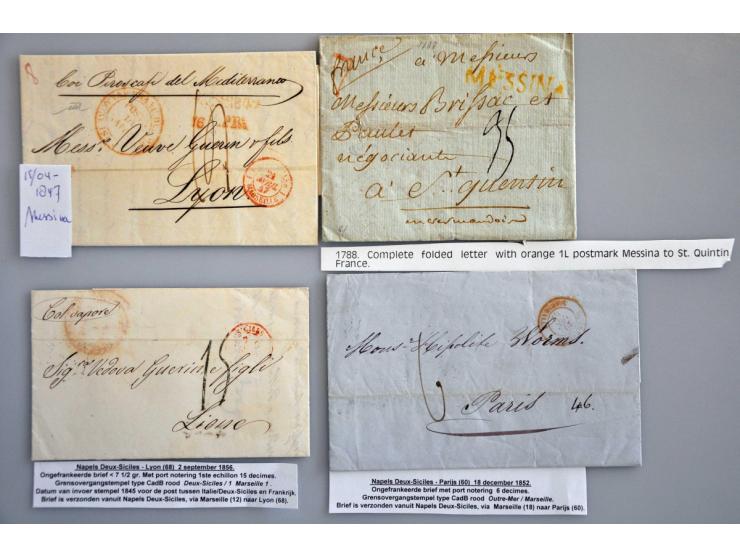 8
Coi Piroscafi del Mediterraneo
Mess.rs Veuve Guerin & fils
Lyon
18/04-
1847
Messina
france
1788
à Messieurs
MESSINA
Messieurs Brissac et
Paulet
négociants
à St quentin
en vermandois
35
1788. Complete folded letter with orange 1L postmark Messina to St. Quintin
France.
Col vapore
15
Sig.ra Vedova Guerin e figli
Lione
Napels Deux-Siciles - Lyon (68) 2 september 1856.
Ongefrankeerde brief < 7 1/2 gr. Met port notering 1ste echillon 15 decimes.
Grensovergangstempel type CadB rood Deux-Siciles / 1 Marseille 1 .
Datum van invoer stempel 1845 voor de post tussen Italie/Deux-Siciles en Frankrijk.
Brief is verzonden vanuit Napels Deux-Siciles, via Marseille (12) naar Lyon (68).
Mons.r Hipolite Worms.
6
Paris
46.
Napels Deux-Siciles - Parijs (60) 18 december 1852.
Ongefrankeerde brief met port notering 6 decimes.
Grensovergangstempel type CadB rood Outre-Mer / Marseille.
Brief is verzonden vanuit Napels Deux-Siciles, via Marseille (18) naar Parijs (60).